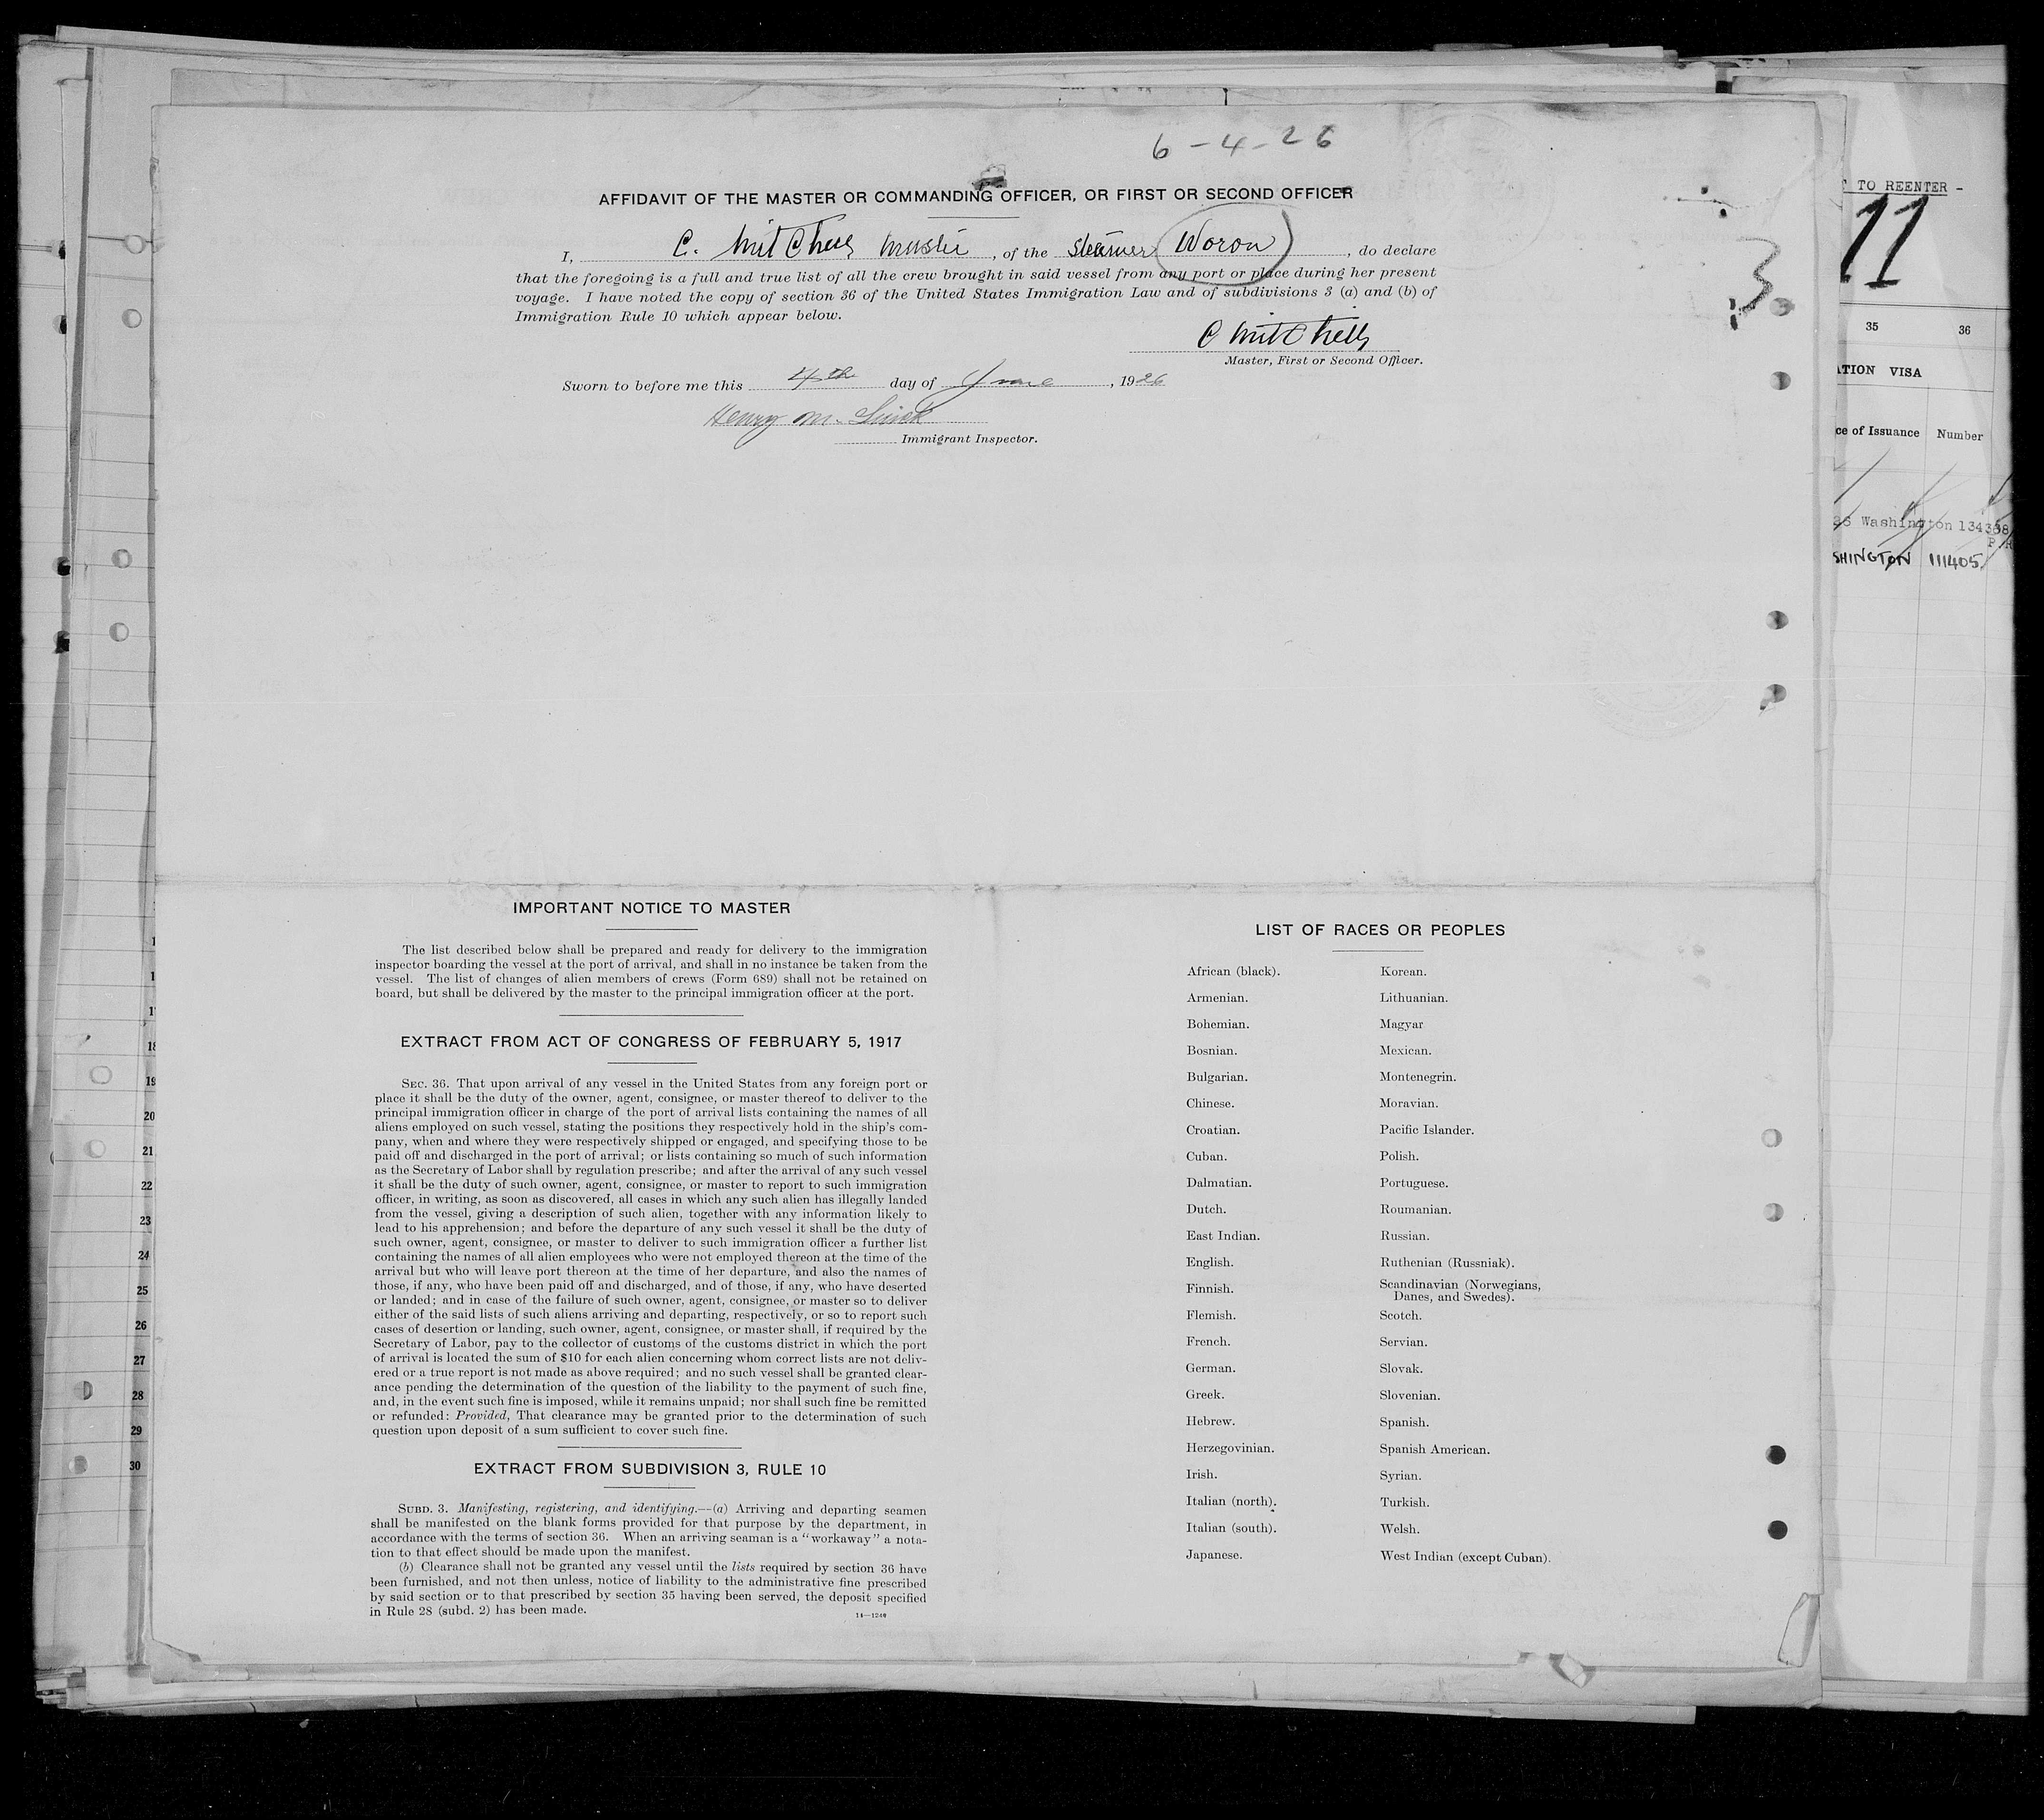 6-4-26
AFFIDAVIT OF THE MASTER OR COMMANDING OFFICER, OR FIRST OR SECOND OFFICER
I, C. Mitchell, of the steamer Woron, do declare
that the foregoing is a full and true list of all the crew brought in said vessel from any port or place during her present
voyage. I have noted the copy of section 36 of the United States Immigration Law and of subdivisions 3 (a) and (b) of
Immigration Rule 10 which appear below.
3
C Mitchell
Master, First or Second Officer.
Sworn to before me this 4th day of June, 1926
Henry M.
Immigrant Inspector.
IMPORTANT NOTICE TO MASTER
The list described below shall be prepared and ready for delivery to the immigration
inspector boarding the vessel at the port of arrival, and shall in no instance be taken from the
vessel. The list of changes of alien members of crews (Form 689) shall not be retained on
board, but shall be delivered by the master to the principal immigration officer at the port.
EXTRACT FROM ACT OF CONGRESS OF FEBRUARY 5, 1917
SEC. 36. That upon arrival of any vessel in the United States from any foreign port or
place it shall be the duty of the owner, agent, consignee, or master thereof to deliver to the
principal immigration officer in charge of the port of arrival lists containing the names of all
aliens employed on such vessel, stating the positions they respectively hold in the ship's com-
pany, when and where they were respectively shipped or engaged, and specifying those to be
paid off and discharged in the port of arrival; or lists containing so much of such information
as the Secretary of Labor shall by regulation prescribe; and after the arrival of any such vessel
it shall be the duty of such owner, agent, consignee, or master to report to such immigration
officer, in writing, as soon as discovered, all cases in which any such alien has illegally landed
from the vessel, giving a description of such alien, together with any information likely to
lead to his apprehension; and before the departure of any such vessel it shall be the duty of
such owner, agent, consignee, or master to deliver to such immigration officer a further list
containing the names of all alien employees who were not employed thereon at the time of the
arrival but who will leave port thereon at the time of her departure, and also the names of
those, if any, who have been paid off and discharged, and of those, if any, who have deserted
or landed; and in case of the failure of such owner, agent, consignee, or master so to deliver
either of the said lists of such aliens arriving and departing, respectively, or so to report such
cases of desertion or landing, such owner, agent, consignee, or master shall, if required by the
Secretary of Labor, pay to the collector of customs of the customs district in which the port
of arrival is located the sum of $10 for each alien concerning whom correct lists are not deliv-
ered or a true report is not made as above required; and no such vessel shall be granted clear-
ance pending the determination of the question of the liability to the payment of such fine,
and, in the event such fine is imposed, while it remains unpaid; nor shall such fine be remitted
or refunded: Provided, That clearance may be granted prior to the determination of such
question upon deposit of a sum sufficient to cover such fine.
EXTRACT FROM SUBDIVISION 3, RULE 10
SUBD. 3. Manifesting, registering, and identifying.—(a) Arriving and departing seamen
shall be manifested on the blank forms provided for that purpose by the department, in
accordance with the terms of section 36. When an arriving seaman is a "workaway" a nota-
tion to that effect should be made upon the manifest.
(b) Clearance shall not be granted any vessel until the lists required by section 36 have
been furnished, and not then unless, notice of liability to the administrative fine prescribed
by said section or to that prescribed by section 35 having been served, the deposit specified
in Rule 28 (subd. 2) has been made.
14—1240
LIST OF RACES OR PEOPLES
African (black).
Armenian.
Bohemian.
Bosnian.
Bulgarian.
Chinese.
Croatian.
Cuban.
Dalmatian.
Dutch.
East Indian.
English.
Finnish.
Flemish.
French.
German.
Greek.
Hebrew.
Herzegovinian.
Irish.
Italian (north).
Italian (south).
Japanese.
Korean.
Lithuanian.
Magyar
Mexican.
Montenegrin.
Moravian.
Pacific Islander.
Polish.
Portuguese.
Roumanian.
Russian.
Ruthenian (Russniak).
Scandinavian (Norwegians,
Danes, and Swedes).
Scotch.
Servian.
Slovak.
Slovenian.
Spanish.
Spanish American.
Syrian.
Turkish.
Welsh.
West Indian (except Cuban).
18
19
20
21
22
23
24
25
26
27
28
29
30
TO REENTER -
11
35 36
ATION VISA
ce of Issuance Number
26 Washington 134368
SHINGTON 111405